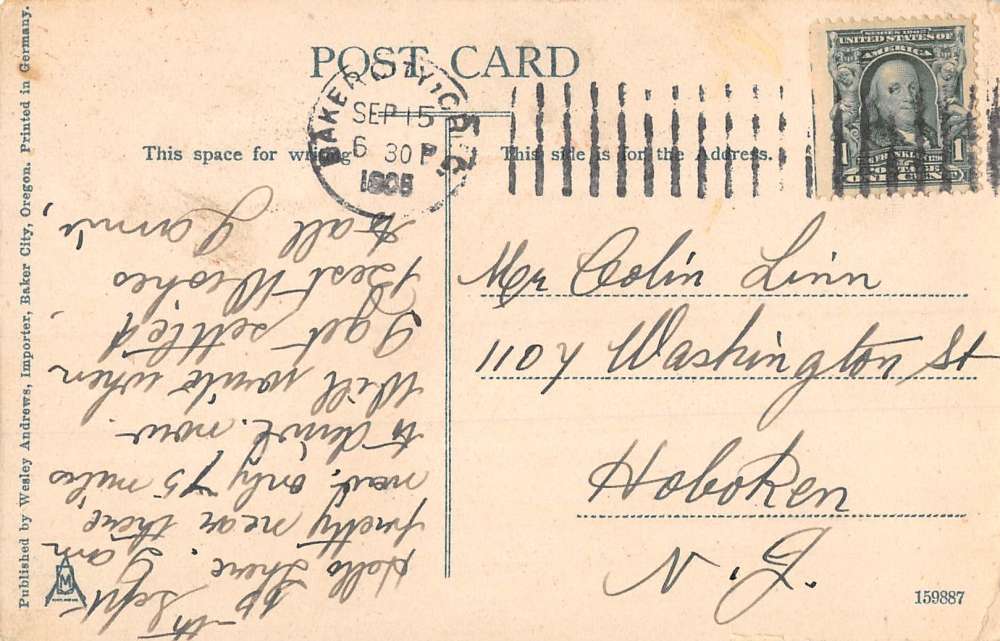 POST CARD
BAKER CITY, OREG.
SEP 15
6 30 P
This space for writing
This side is for the Address.
SERIES 1902
UNITED STATES OF
AMERICA
1 FRANKLIN 1
POSTAGE
ONE CENT
Mr Colin Linn
1107 Washington St
Hoboken
N. J.
Sept
Hello There. I am
pretty near there
next, only 75 miles
to drive now.
Will write when
I get settled
Best Wishes
to all
Published by Wesley Andrews, Importer, Baker City, Oregon. Printed in Germany.
159887